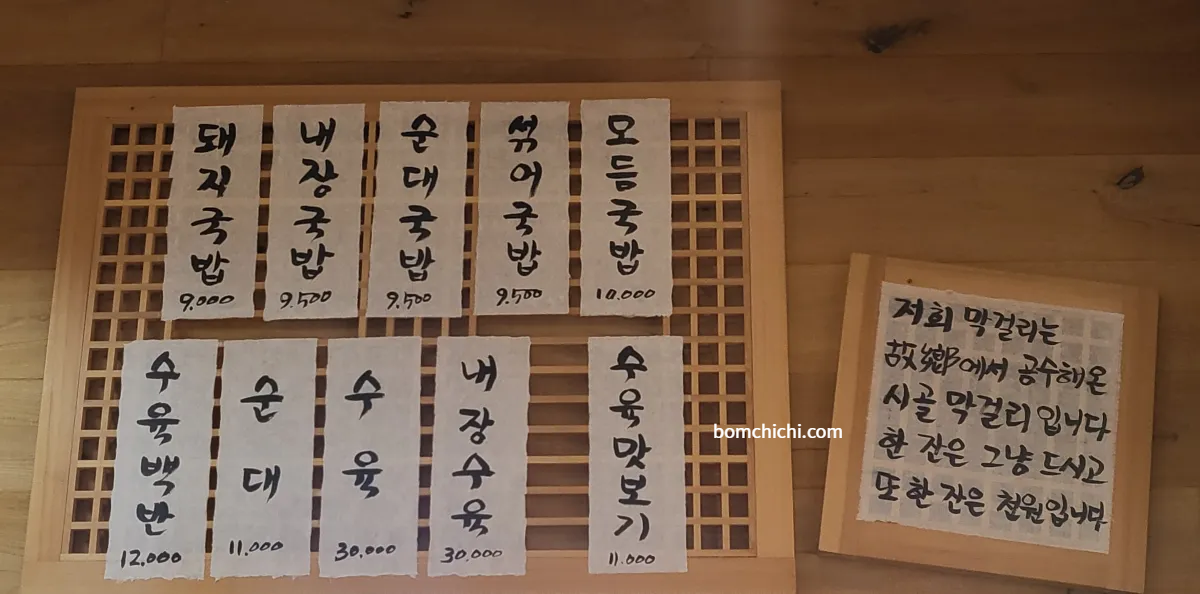 돼지국밥
9.000
내장국밥
9.500
순대국밥
9.500
섞어국밥
9.500
모듬국밥
10.000
수육백반
12.000
순대
11.000
수육
30.000
내장수육
30.000
수육맛보기
11.000
bomchichi.com
저희 막걸리는
故鄕에서 공수해온
시골 막걸리입니다
한 잔은 그냥 드시고
또 한 잔은 천원입니다